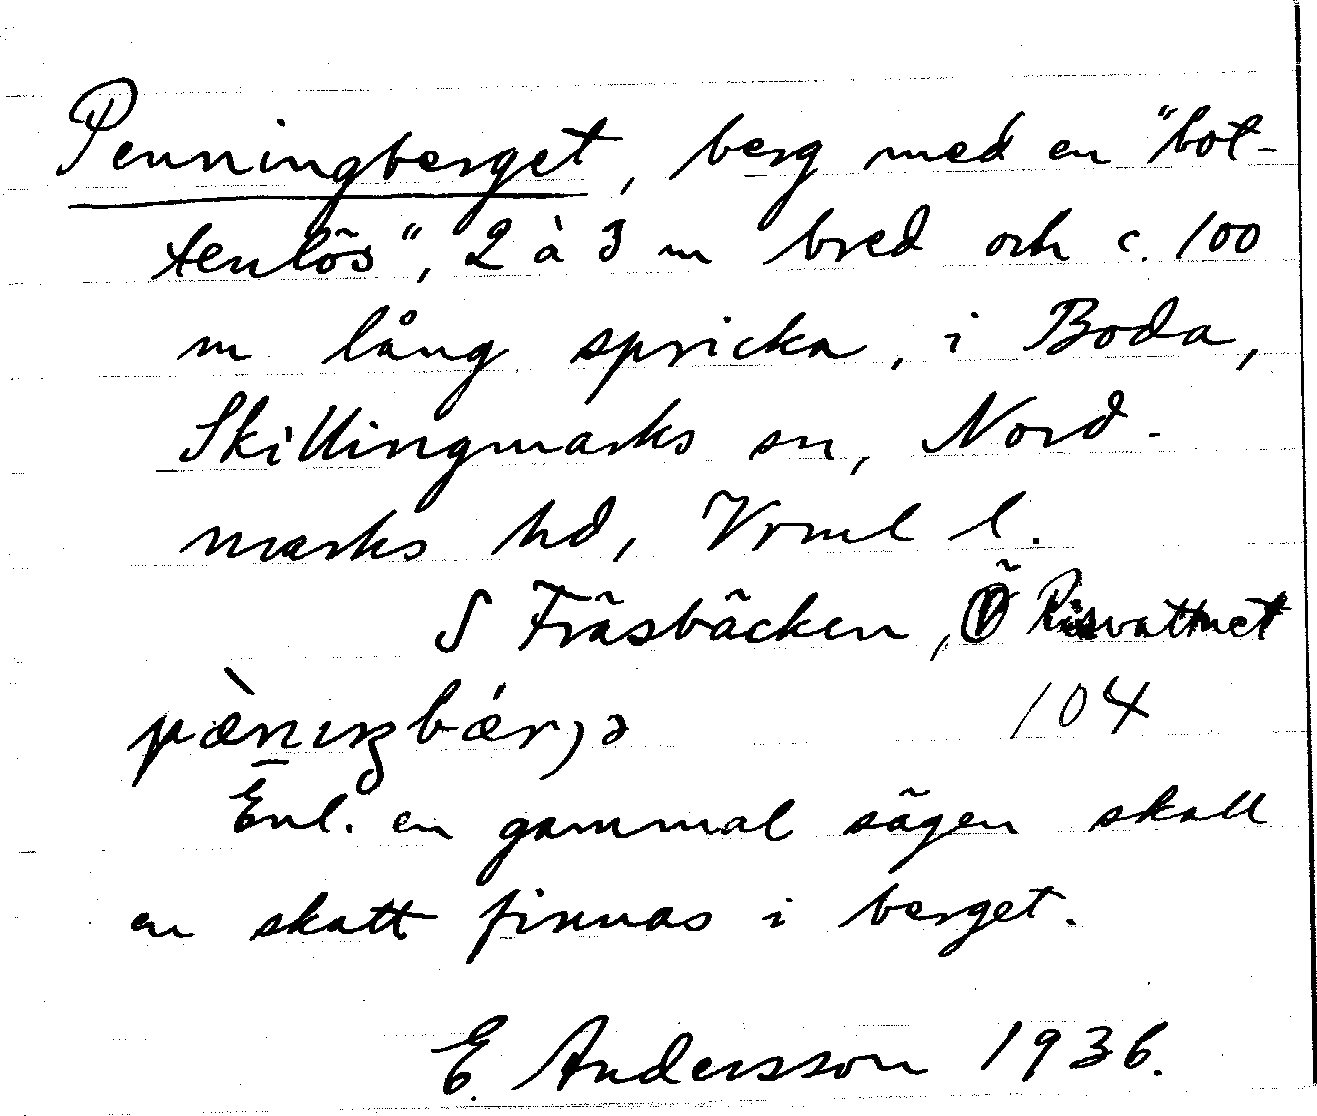 Penningberget, berg med en "bot-
tenlös", 2 à 3 m bred och c. 100
m lång spricka, i Boda,
Skillingmarks sn, Nord-
marks hd, Vrml l.
S Fräsbäcken, Ö Risvattnet
104
Enl. en gammal sägen skall
en skatt finnas i berget.
E. Andersson 1936.